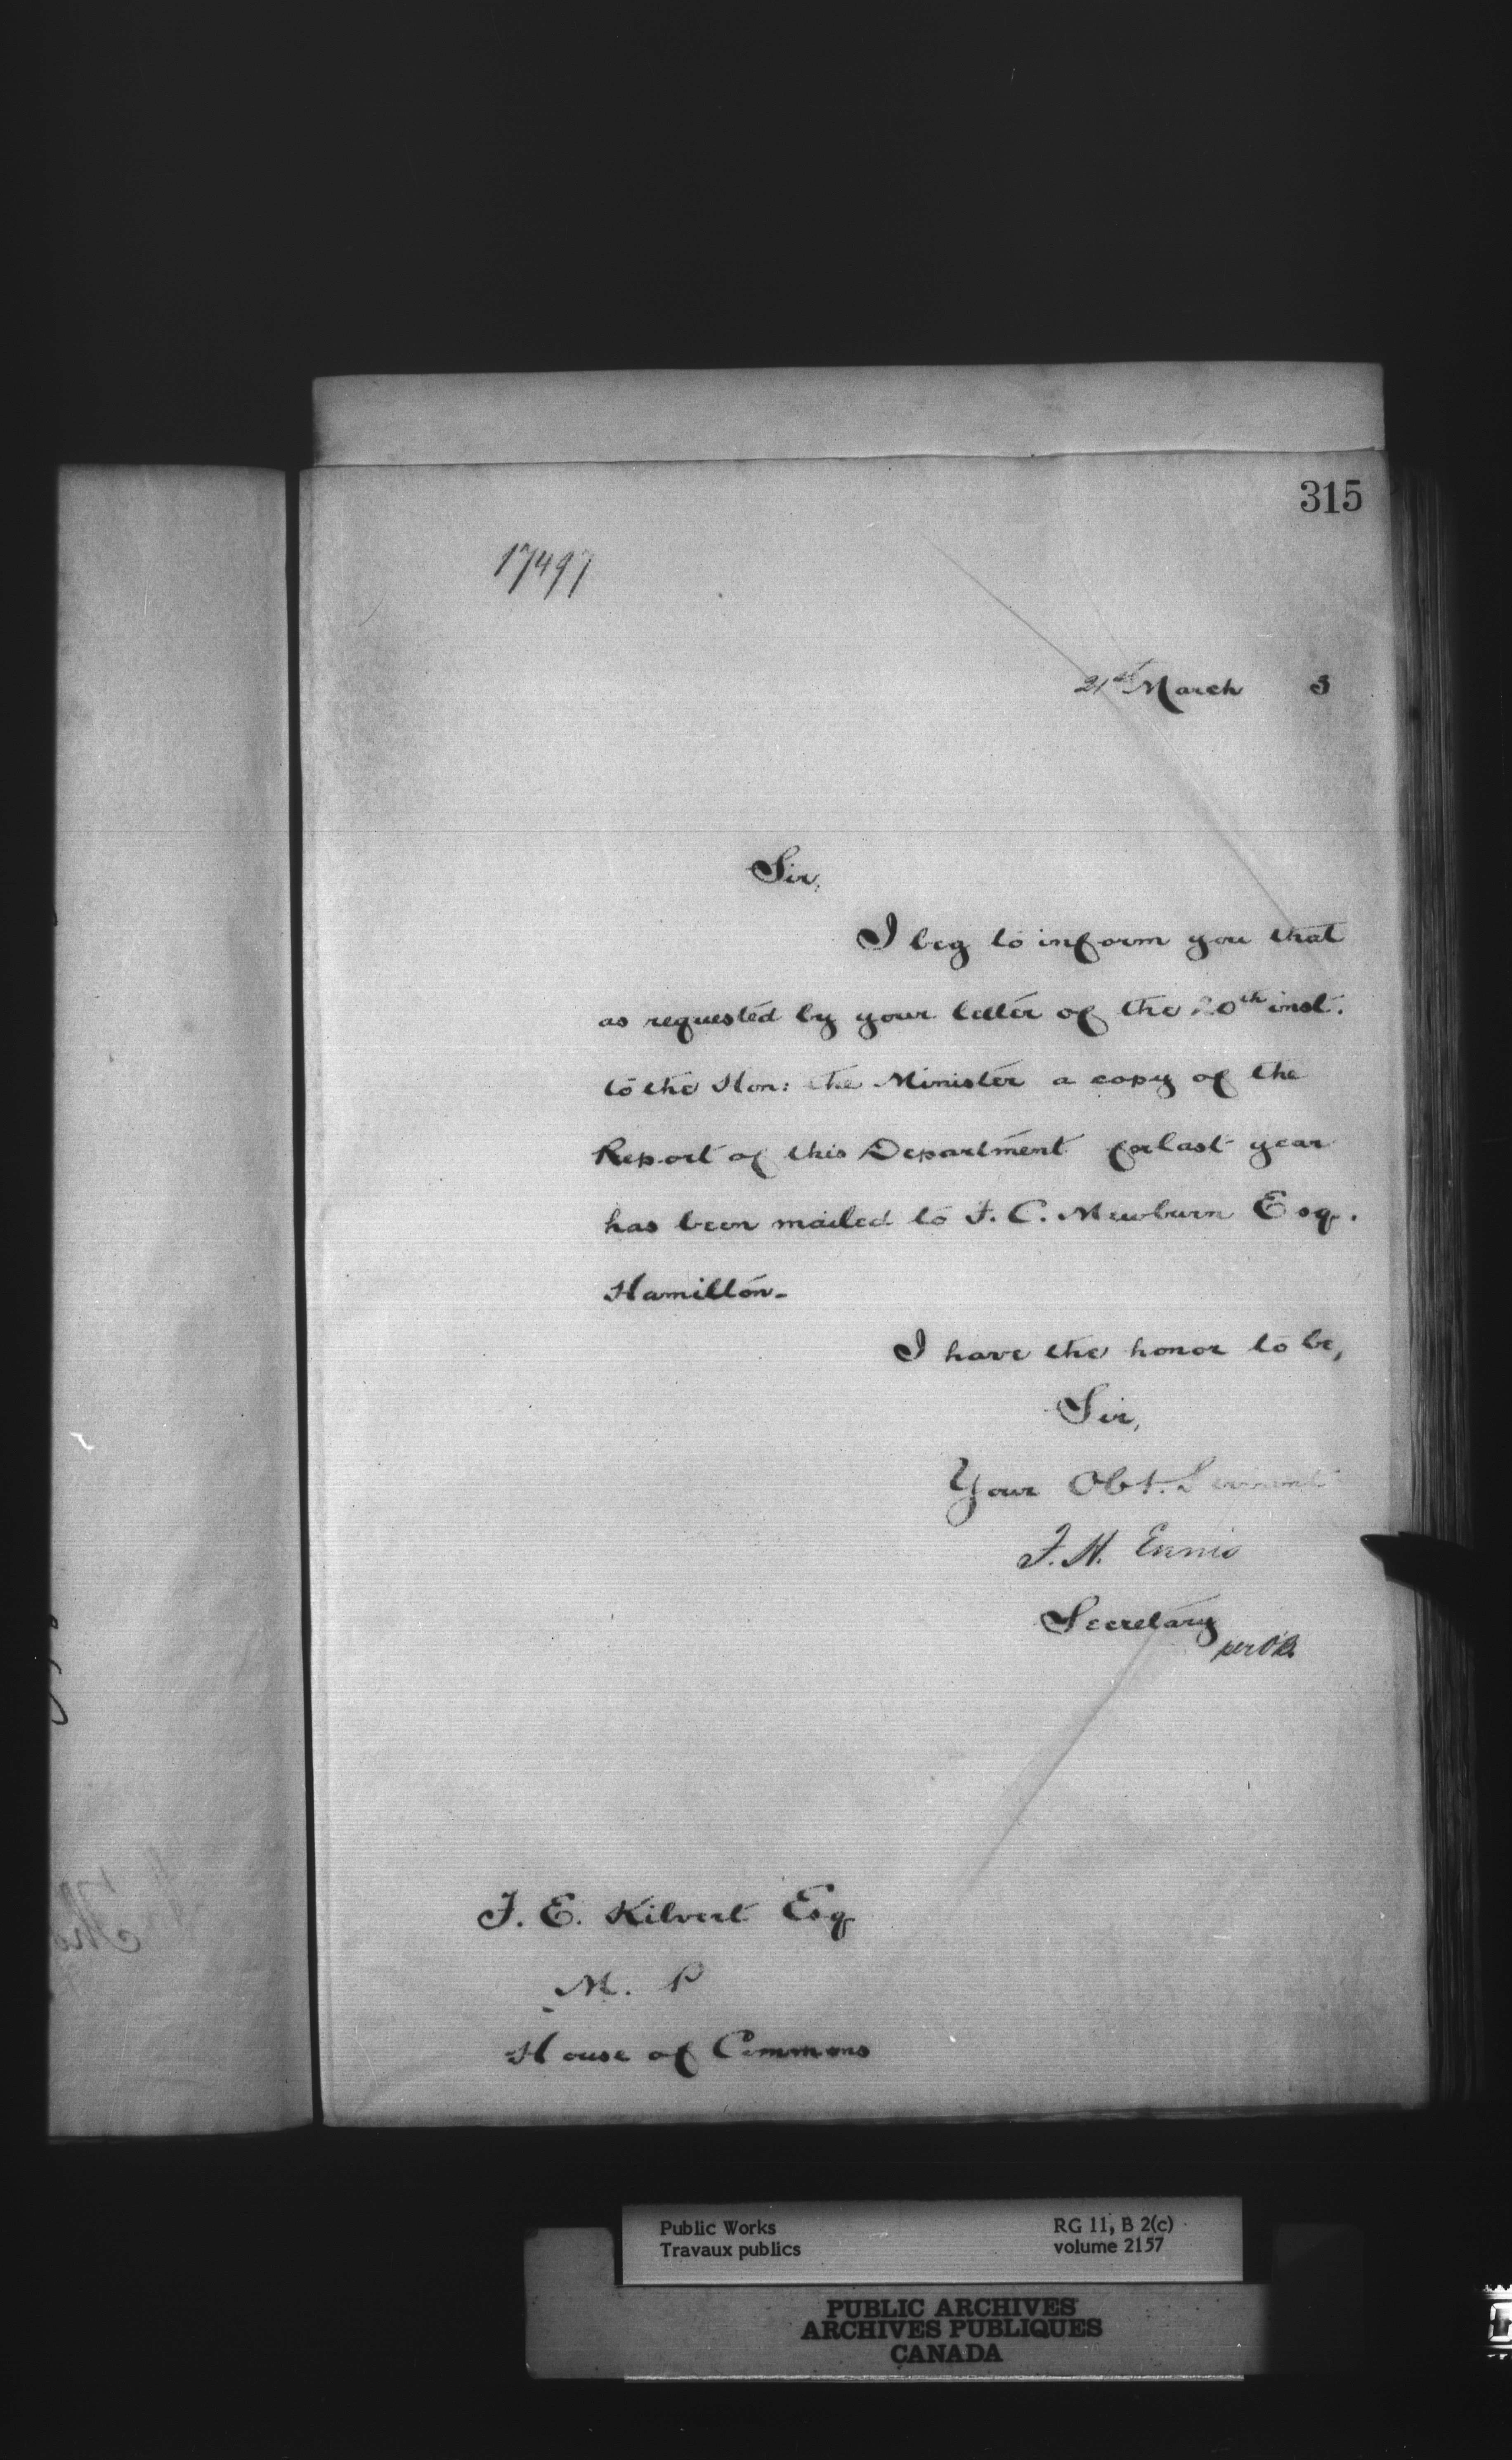 315
17497
21st March 3
Sir,
I beg to inform you that
as requested by your letter of the 20th inst.
to the Hon: the Minister a copy of the
Report of this Department for last year
has been mailed to F. C. Mewburn Esq.
Hamilton-
I have the honor to be,
Sir,
Your Obt. Servant
F. H. Ennis
Secretary
per
F. E. Kilvert Esq
M. P
House of Commons
Public Works
Travaux publics
RG 11, B 2(c)
volume 2157
PUBLIC ARCHIVES
ARCHIVES PUBLIQUES
CANADA